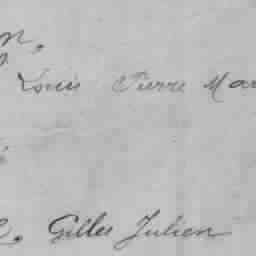 n.
Louis Pierre Mar
e. Gilles Julien